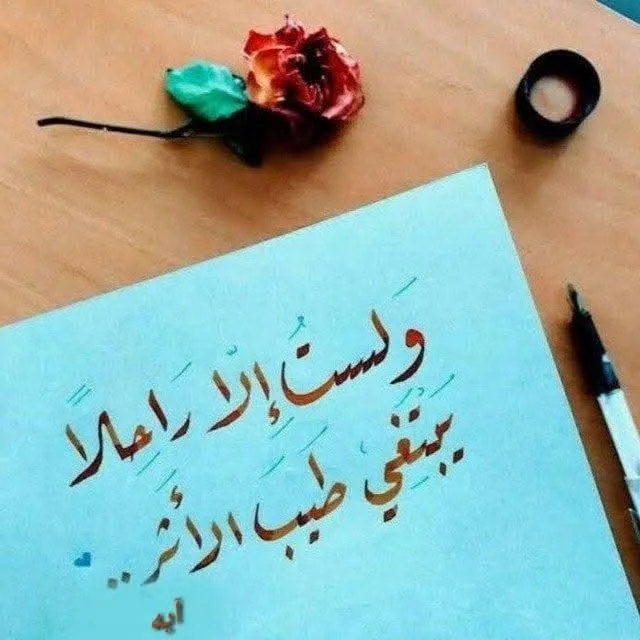 وَلستُ إلّا رَاحِلاً
يَبْتَغِي طِيَبَ الأَثَر..
آيه